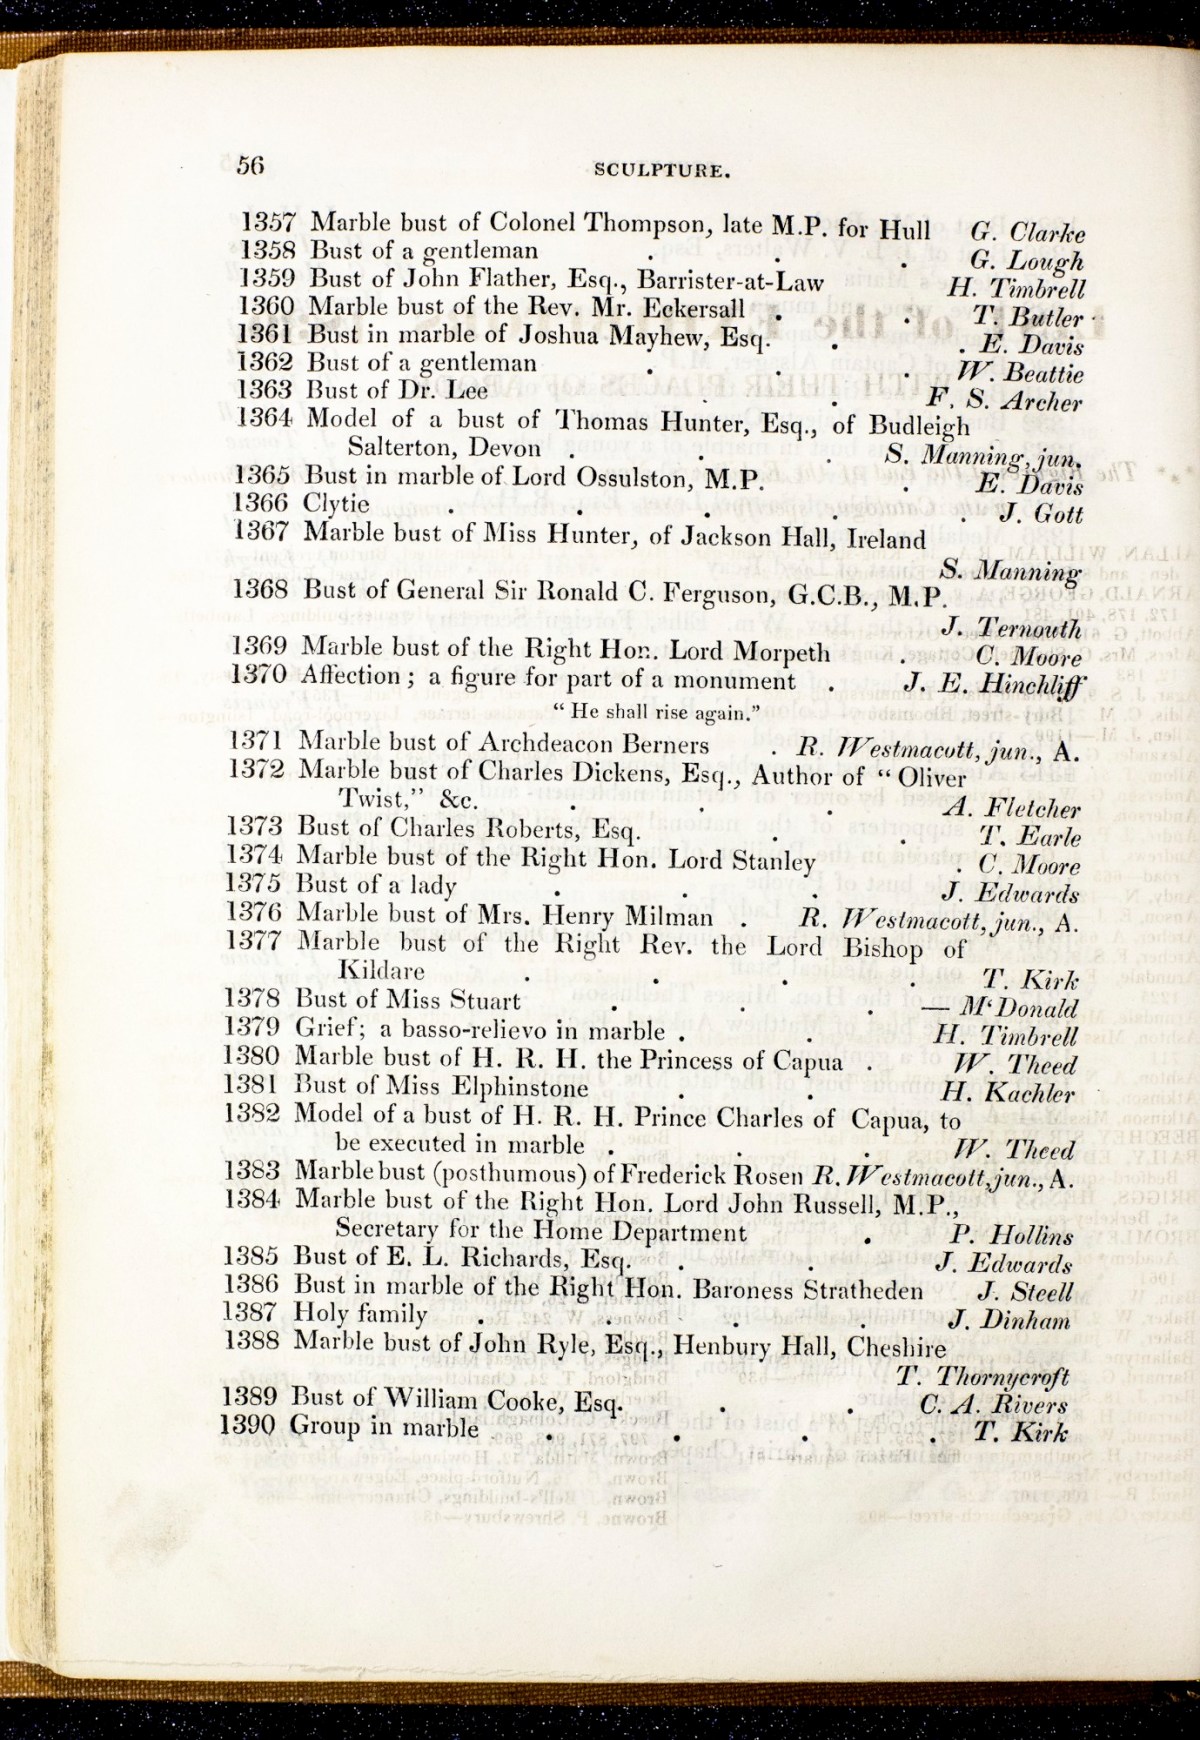 56
SCULPTURE.
1357 Marble bust of Colonel Thompson, late M.P. for Hull G. Clarke
1358 Bust of a gentleman . . . G. Lough
1359 Bust of John Flather, Esq., Barrister-at-Law H. Timbrell
1360 Marble bust of the Rev. Mr. Eckersall . . T. Butler
1361 Bust in marble of Joshua Mayhew, Esq. . . E. Davis
1362 Bust of a gentleman . . . W. Beattie
1363 Bust of Dr. Lee . . F. S. Archer
1364 Model of a bust of Thomas Hunter, Esq., of Budleigh
Salterton, Devon . . . S. Manning, jun.
1365 Bust in marble of Lord Ossulston, M.P. . E. Davis
1366 Clytie . . . . . J. Gott
1367 Marble bust of Miss Hunter, of Jackson Hall, Ireland
S. Manning
1368 Bust of General Sir Ronald C. Ferguson, G.C.B., M.P.
J. Ternouth
1369 Marble bust of the Right Hon. Lord Morpeth . C. Moore
1370 Affection; a figure for part of a monument . J. E. Hinchliff
“He shall rise again.”
1371 Marble bust of Archdeacon Berners . R. Westmacott, jun., A.
1372 Marble bust of Charles Dickens, Esq., Author of “Oliver
Twist,” &c. . . . A. Fletcher
1373 Bust of Charles Roberts, Esq. . . T. Earle
1374 Marble bust of the Right Hon. Lord Stanley . C. Moore
1375 Bust of a lady . . . J. Edwards
1376 Marble bust of Mrs. Henry Milman . R. Westmacott, jun., A.
1377 Marble bust of the Right Rev. the Lord Bishop of
Kildare . . . . T. Kirk
1378 Bust of Miss Stuart . . . — M‘Donald
1379 Grief; a basso-relievo in marble . . H. Timbrell
1380 Marble bust of H. R. H. the Princess of Capua . W. Theed
1381 Bust of Miss Elphinstone . . H. Kachler
1382 Model of a bust of H. R. H. Prince Charles of Capua, to
be executed in marble . . . W. Theed
1383 Marble bust (posthumous) of Frederick Rosen R. Westmacott, jun., A.
1384 Marble bust of the Right Hon. Lord John Russell, M.P.,
Secretary for the Home Department . P. Hollins
1385 Bust of E. L. Richards, Esq. . . J. Edwards
1386 Bust in marble of the Right Hon. Baroness Stratheden J. Steell
1387 Holy family . . . . J. Dinham
1388 Marble bust of John Ryle, Esq., Henbury Hall, Cheshire
T. Thornycroft
1389 Bust of William Cooke, Esq. . . C. A. Rivers
1390 Group in marble . . . . T. Kirk